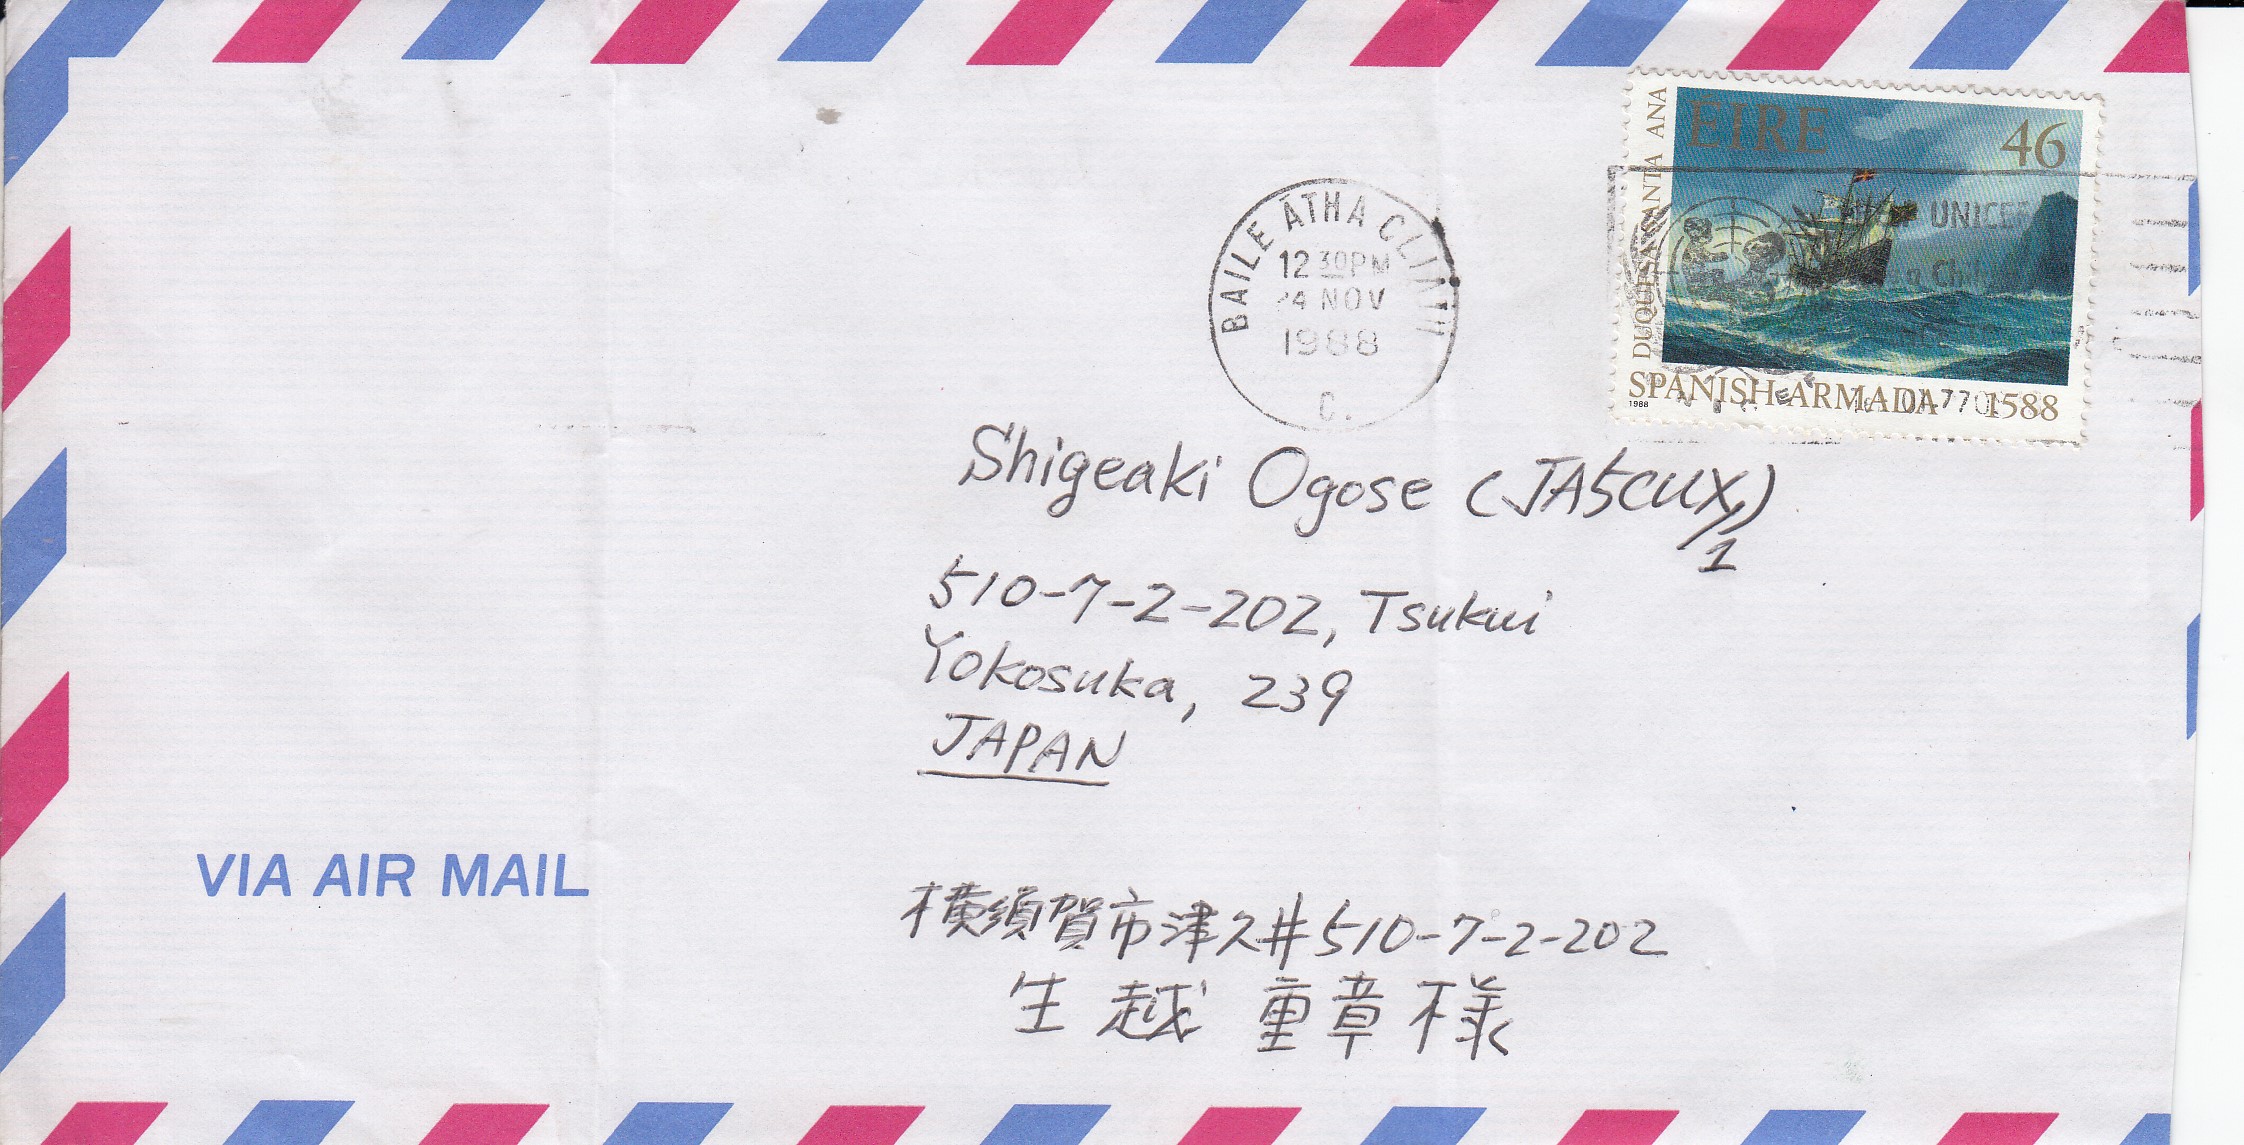 ÉIRE 46
DUQUESA SANTA ANA
SPANISH ARMADA 1588
1988
UNICEF
BAILE ÁTHA CLIATH
12 30PM
24 NOV
1988
C.
Shigeaki Ogose (JA5CUX/1)
510-7-2-202, Tsukui
Yokosuka, 239
JAPAN
VIA AIR MAIL
横須賀市津久井510-7-2-202
生越 重章様